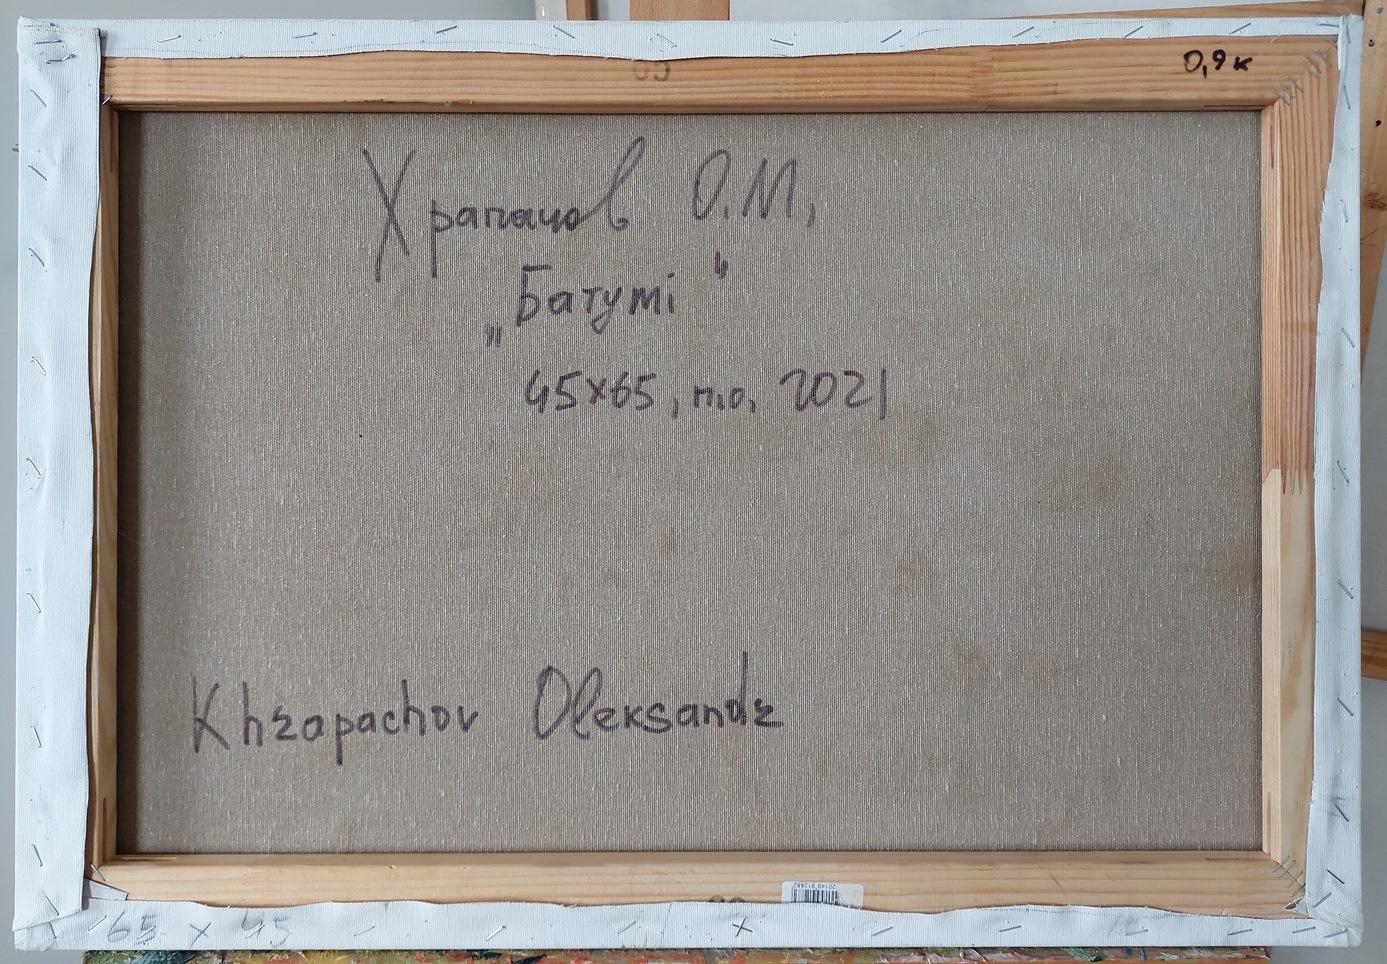 0,9к
Храпачов О.М,
„Батумі“
45х65, п.о, 2021
Khrapachov Oleksandr
65 x 45